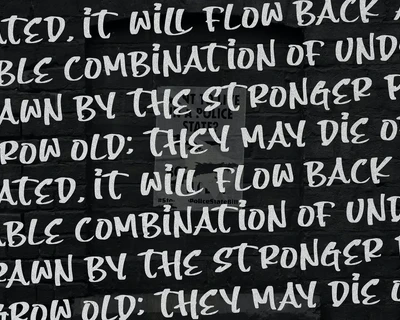 ATED, iT WiLL FLOW BACK
BLE COMBiNATiON OF UND
AWN BY THE STRONGER
ROW OLD; THEY MAY DiE O
ATED, iT WiLL FLOW BACK
ABLE COMBiNATiON OF UND
PAWN BY THE STRONGER
GROW OLD; THEY MAY DiE O
A POLICE
STATE?